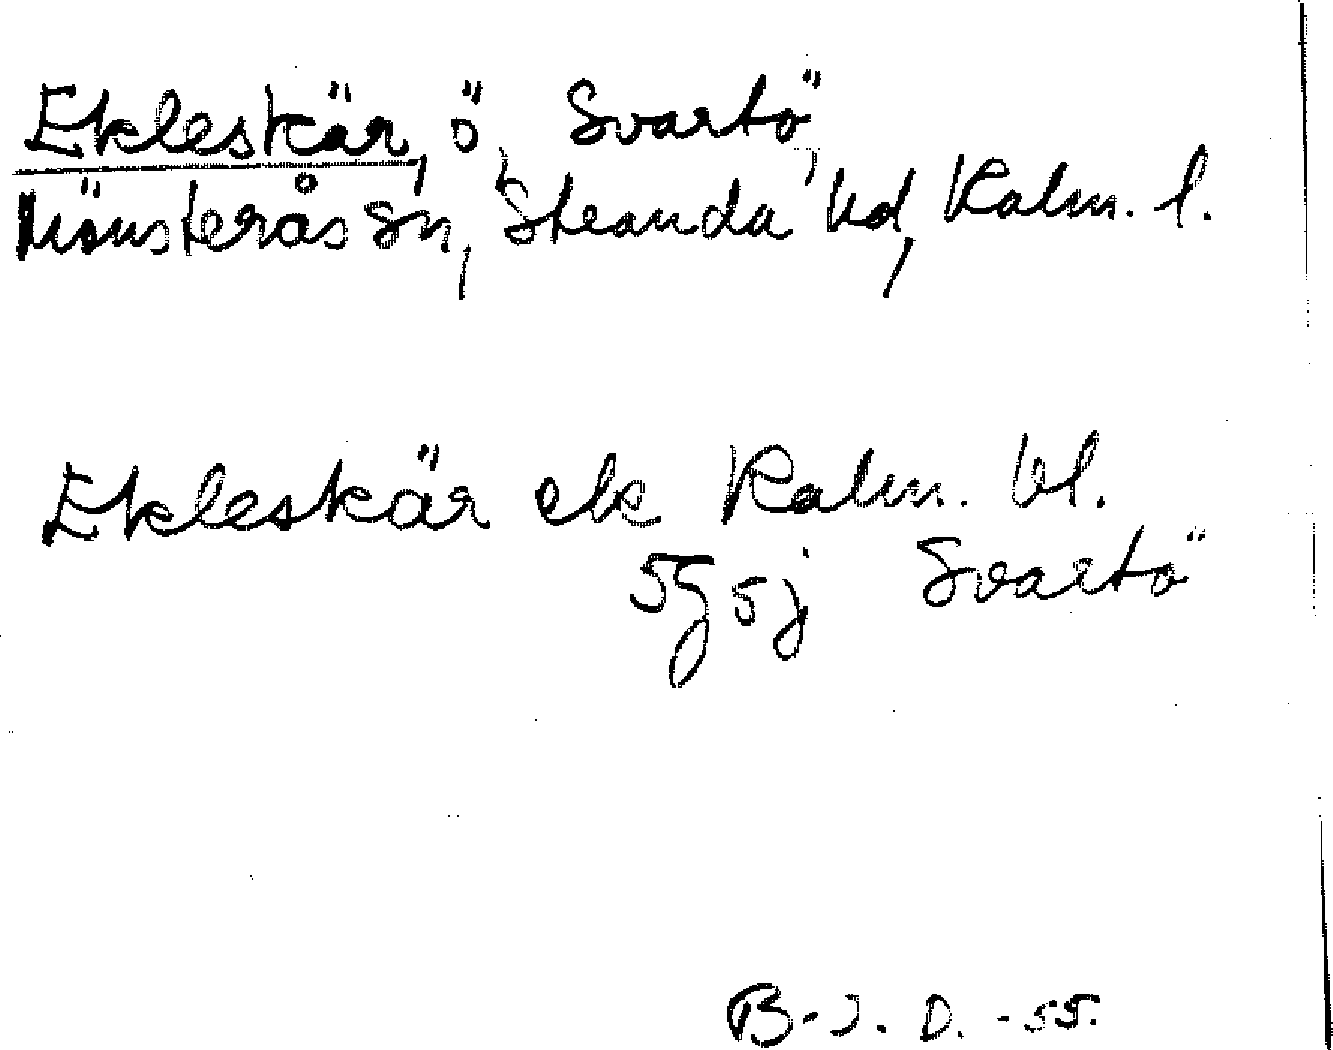 Ekleskär, ö, Svartö,
Mönsterås sn, Stranda hd, Kalm. l.
Ekleskär ek Kalm. bl.
5g5j Svartö
B-J. D. -55.